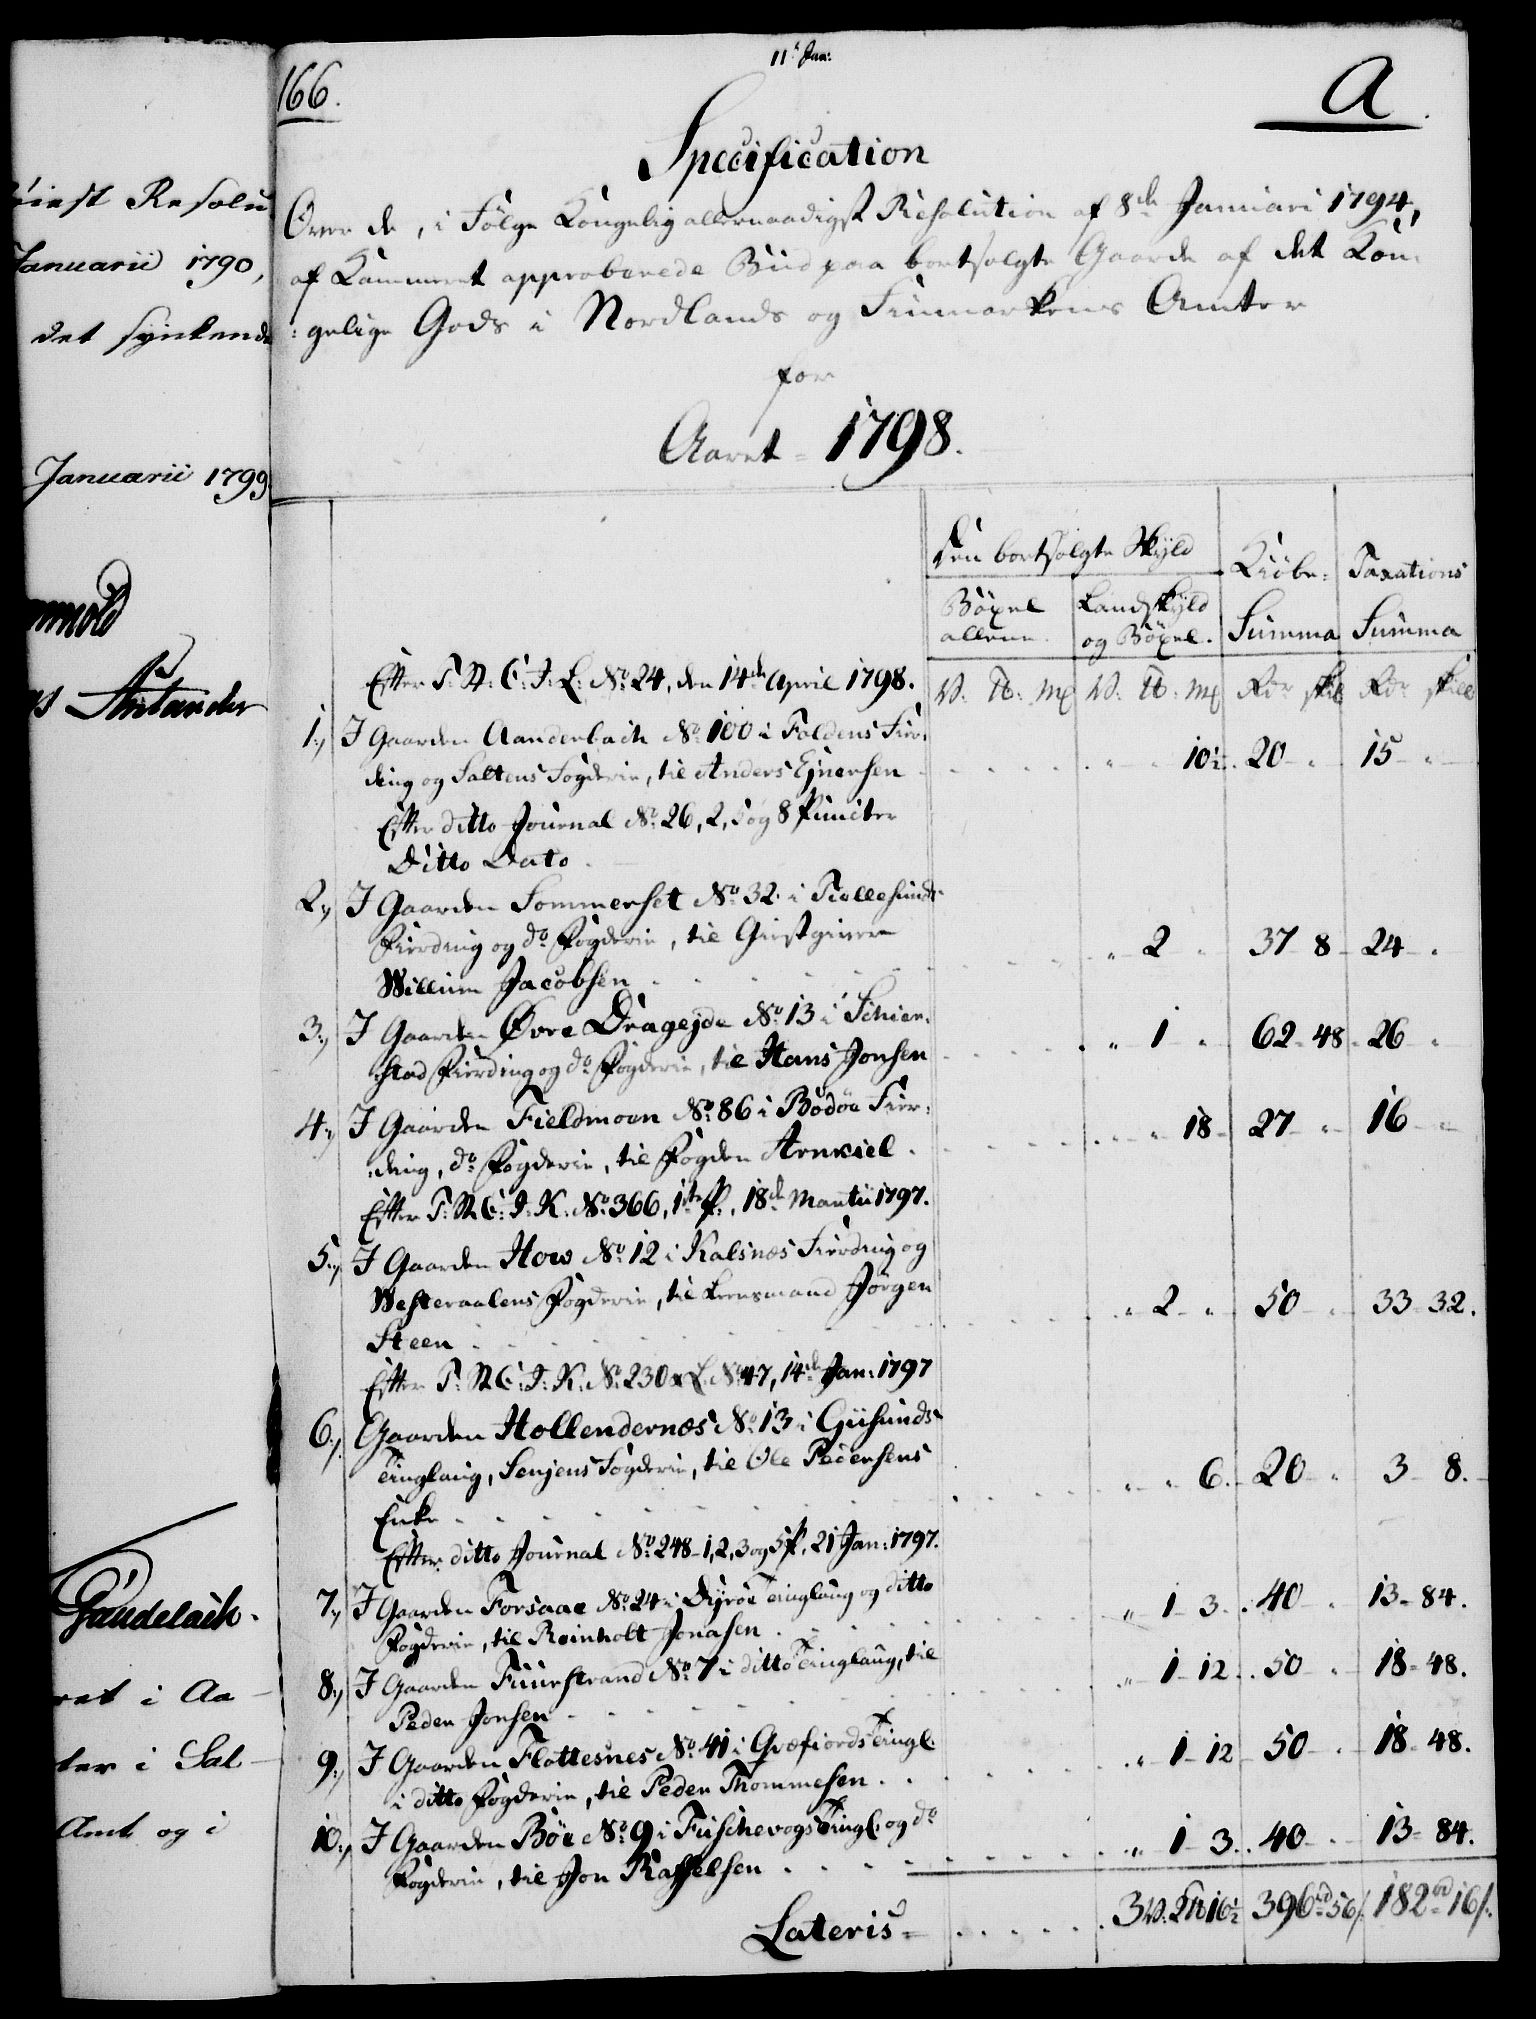 iest Resolu
Januarii 1790,
det synkende
Januarii 1799
Gaudelach.
ret i Aa
ter i Sal
Amt og i
11t Jan:
166.
A
Specification
Over de, i Følge Kongelig allernaadigst Resolution af 8de Januari 1794,
af Kammeret approberede Bud paa bortsolgte Gaarde af det Kon-
:gelige Gods i Nordlands og Finmarkens Amter
for
Aaret = 1798.
Den bortsolgte Skyld
Kiöbe= Taxations
Böxel Landskyld
allene. og Böxel. Summa Summa
V. ℔: mk V. ℔: mk Rdr skil Rdr skill
Efter T: R: C: J: L: No 24, den 14de April 1798.
1.) I Gaarden Aanderbach No 100 i Foldens Fier-
ding og Saltens Fogderie, til Anders Ejnersen " " 10½. 20 " 15 "
Efter ditto Journal No 26, 2, 5 og 8 Puncter
Ditto Dato.
2.) I Gaarden Sommerset No 32 i Fiellesunds
Fierding og do Fogderie, til Giestgiver
Willum Jacobsen " 2 " 37 8 24 "
3.) I Gaarden Øvre Dragejde No 13 i Schier-
stad Fierding og do Fogderie, til Hans Jonsen " 1 " 62 48 26 "
4.) I Gaarden Fieldmoen No 86 i Bodöe Fier-
:ding, do Fogderie, til Fogden Arnkiel. " " 18 27 " 16 "
Efter T: R: C: J: K: No 366, 1ste P., 18de Martii 1797.
5.) I Gaarden How No 12 i Kalsnæs Fierding og
Westeraalens Fogderie, til Lensmand Jörgen
Steen " 2 " 50 " 33 32.
Efter T: R: C: J: K: No 230 L. No 47, 14de Jan: 1797
6.) Gaarden Hollendernæs No 13 i Giisunds
Tinglaug, Senjens Fogderie, til Ole Pedersens
Enke " " 6. 20 " 3 8.
Efter ditto Journal No 248-1, 2, 3 og 5 P. 21 Jan: 1797.
7.) I Gaarden Forsaae No 24 i Dyröe Tinglaug og ditto
Fogderie, til Reinholt Jonasen " 1 3. 40 " 13 84.
8.) I Gaarden Fuurstrand No 7 i ditto Tinglaug, til
Peder Jonsen " 1 12. 50 " 18 48.
9.) I Gaarden Flottesnes No 41 i Græfiords Tingl.
i ditto Fogderie, til Peder Thommesen " 1 12 50 " 18 48.
10.) I Gaarden Böe No 9 i Fuschevogs Tingl. og do
Fogderie, til Jon Raffelsen " 1 3. 40 " 13 84.
Lateris= 3 V. 2 ℔ 16½ 396 rd 56 s. 182 rd 16 s.